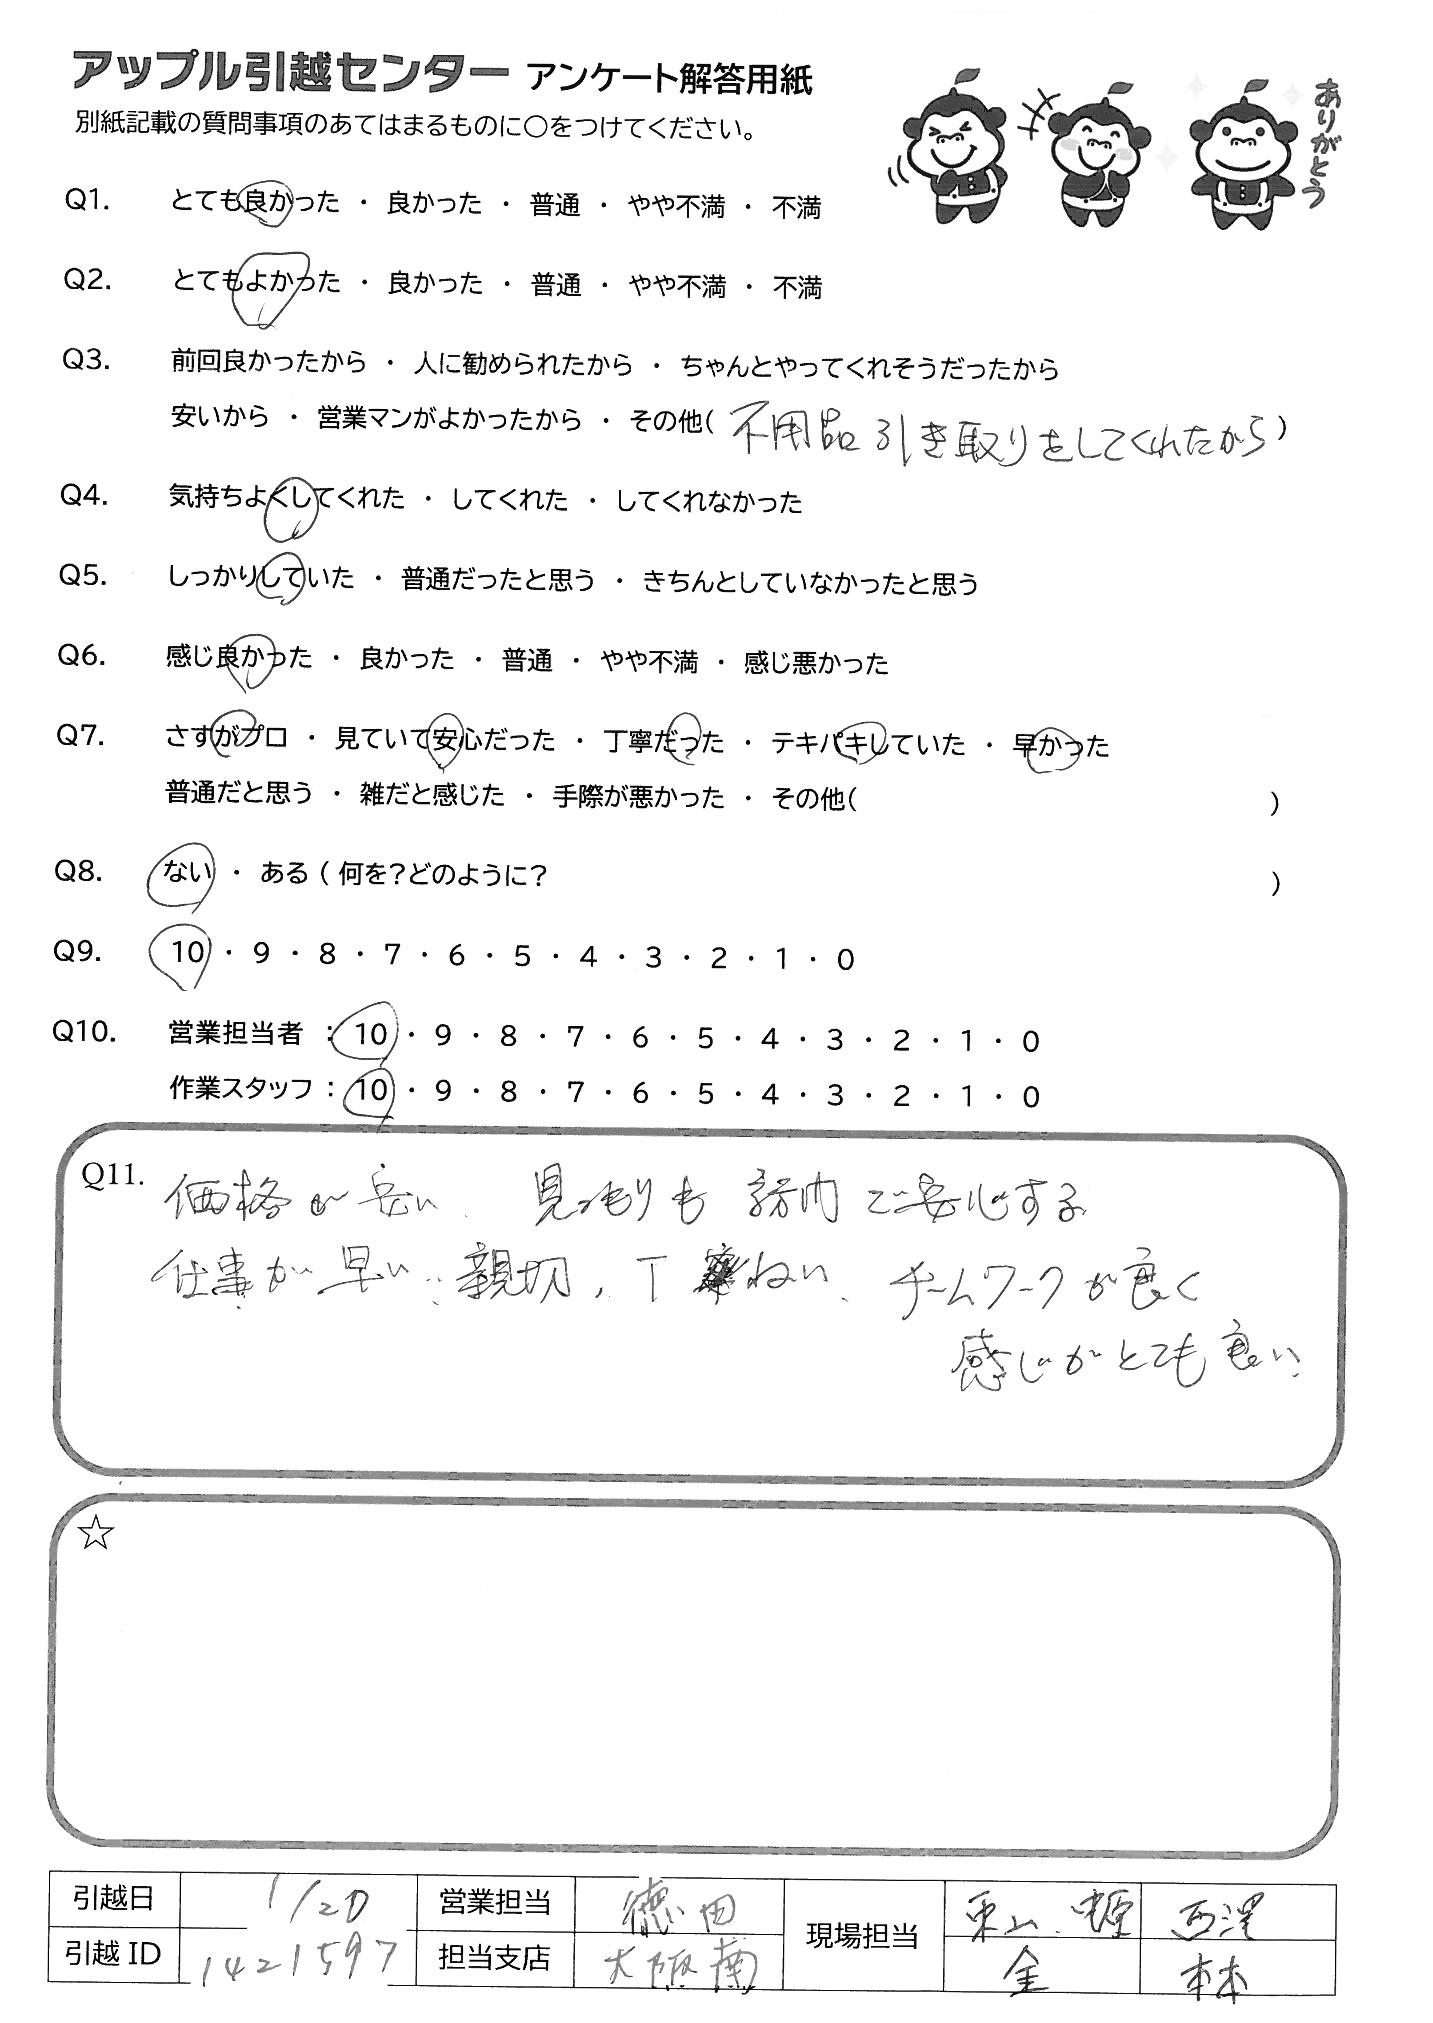 アップル引越センター アンケート解答用紙
別紙記載の質問事項のあてはまるものに○をつけてください。
ありがとう
Q1. とても良かった ・ 良かった ・ 普通 ・ やや不満 ・ 不満
Q2. とてもよかった ・ 良かった ・ 普通 ・ やや不満 ・ 不満
Q3. 前回良かったから ・ 人に勧められたから ・ ちゃんとやってくれそうだったから
安いから ・ 営業マンがよかったから ・ その他( 不用品引き取りをしてくれたから )
Q4. 気持ちよくしてくれた ・ してくれた ・ してくれなかった
Q5. しっかりしていた ・ 普通だったと思う ・ きちんとしていなかったと思う
Q6. 感じ良かった ・ 良かった ・ 普通 ・ やや不満 ・ 感じ悪かった
Q7. さすがプロ ・ 見ていて安心だった ・ 丁寧だった ・ テキパキしていた ・ 早かった
普通だと思う ・ 雑だと感じた ・ 手際が悪かった ・ その他( )
Q8. ない ・ ある ( 何を？どのように？ )
Q9. 10 ・ 9 ・ 8 ・ 7 ・ 6 ・ 5 ・ 4 ・ 3 ・ 2 ・ 1 ・ 0
Q10. 営業担当者 : 10 ・ 9 ・ 8 ・ 7 ・ 6 ・ 5 ・ 4 ・ 3 ・ 2 ・ 1 ・ 0
作業スタッフ : 10 ・ 9 ・ 8 ・ 7 ・ 6 ・ 5 ・ 4 ・ 3 ・ 2 ・ 1 ・ 0
Q11. 価格が安い、見つもりも 訪問 で安心する
仕事が早い、親切、丁ねい、チームワークが良く
感じがとても良い、
☆
引越日 1/20 営業担当 徳田 現場担当 東山、中窪 西澤
引越ID 1421597 担当支店 大阪南 金 林